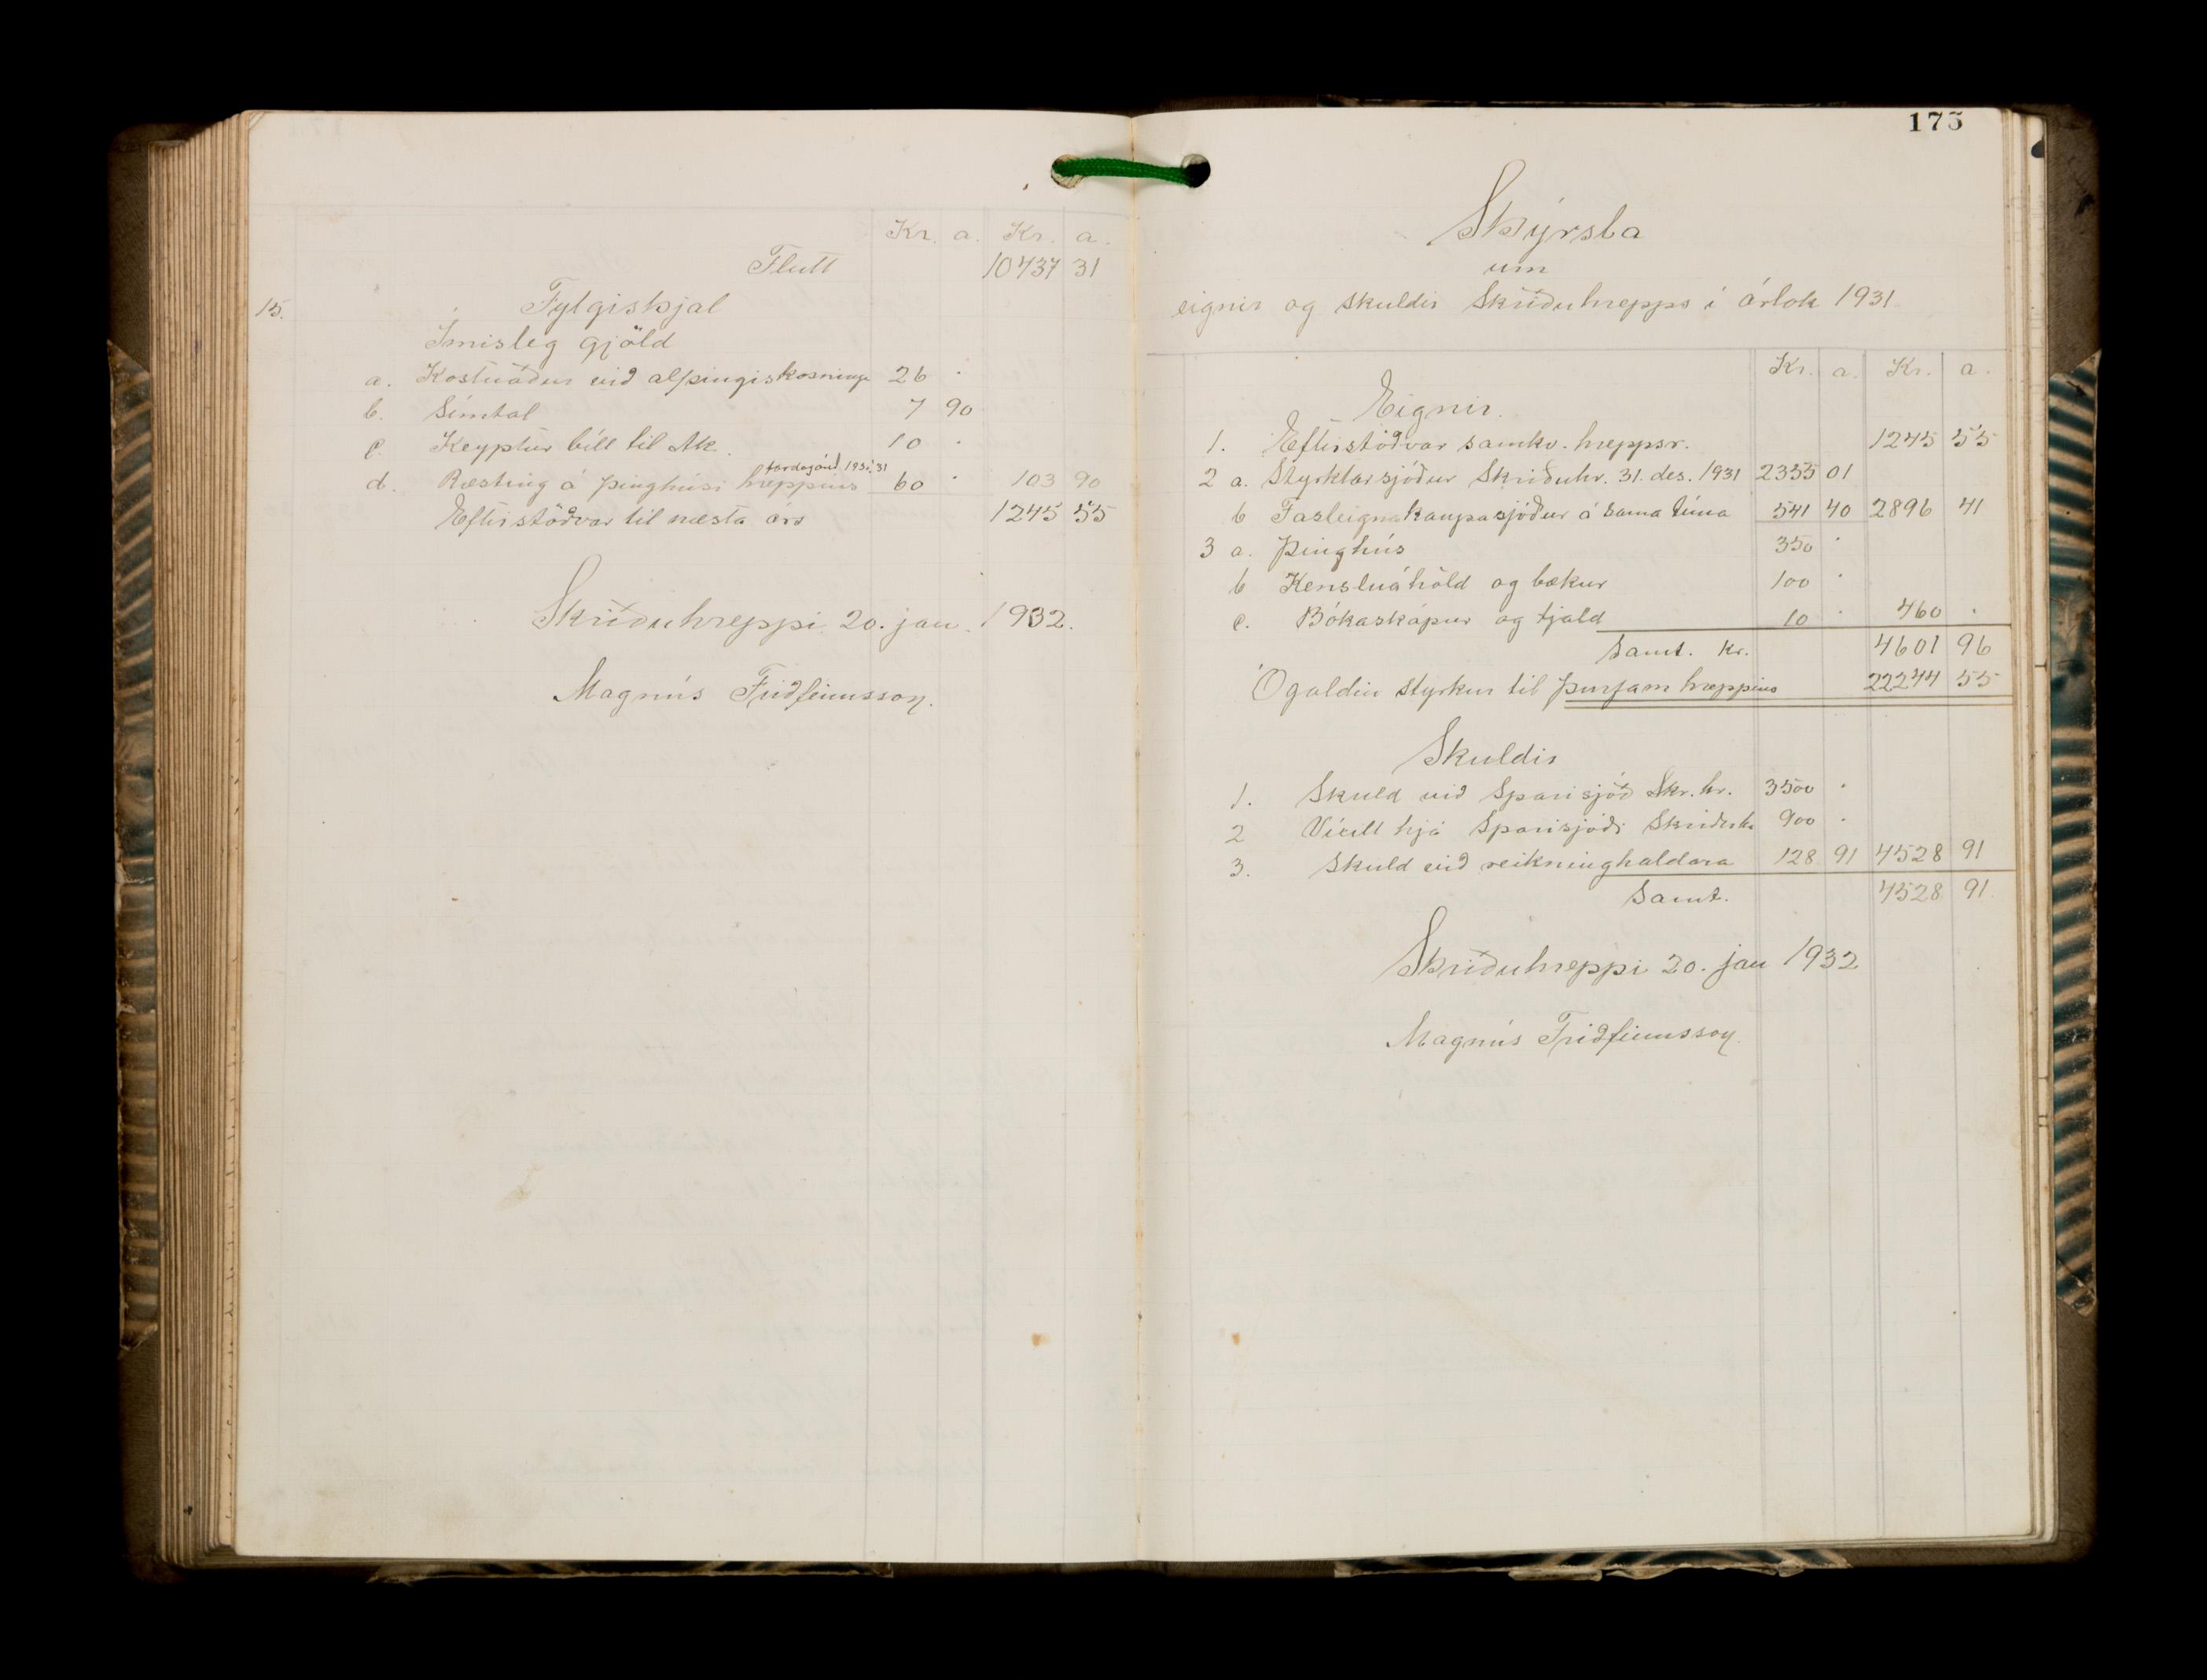 Kr. a. Kr. a.
Flutt 10437 31
15. Fylgiskjal
Ímisleg gjöld
a. Kostnaður við alþingiskosningu 26 ·
b. Símtal 7 90
c. Keyptur bíll til Ak. 10 ·
fardagaárið 1930-31
d. Ræsting á þinghúsi hreppsins 60 · 103 90
Eftirstöðvar til næsta árs 1245 55
Skriðuhreppi 20. jan. 1932.
Magnús Friðfinnsson.
175
Skýrsla
um
eignir og skuldir Skriðuhrepps í árlok 1931
Kr. a. Kr. a.
Eignir.
1. Eftirstöðvar samkv. hreppsr. 1245 55
2 a. Styrktarsjóður Skriðuhr. 31. des. 1931 2355 01
b Fasteignakaupasjóður á sama tíma 541 40 2896 41
3 a. Þinghús 350 ·
b Kensluáhöld og bækur 100 ·
c. Bókaskápur og tjald 10 · 460 ·
Samt. Kr. 4601 96
Ógoldin styrkur til þurfam hreppsins 22244 55
Skuldir
1. Skuld við Sparisjóð Skr.hr. 3500 ·
2 Víxill hjá Sparisjóði Skriðuh 900 ·
3. Skuld við reikninghaldara 128 91 4528 91
Samt. 4528 91
Skriðuhreppi 20. jan 1932
Magnús Friðfinnsson.